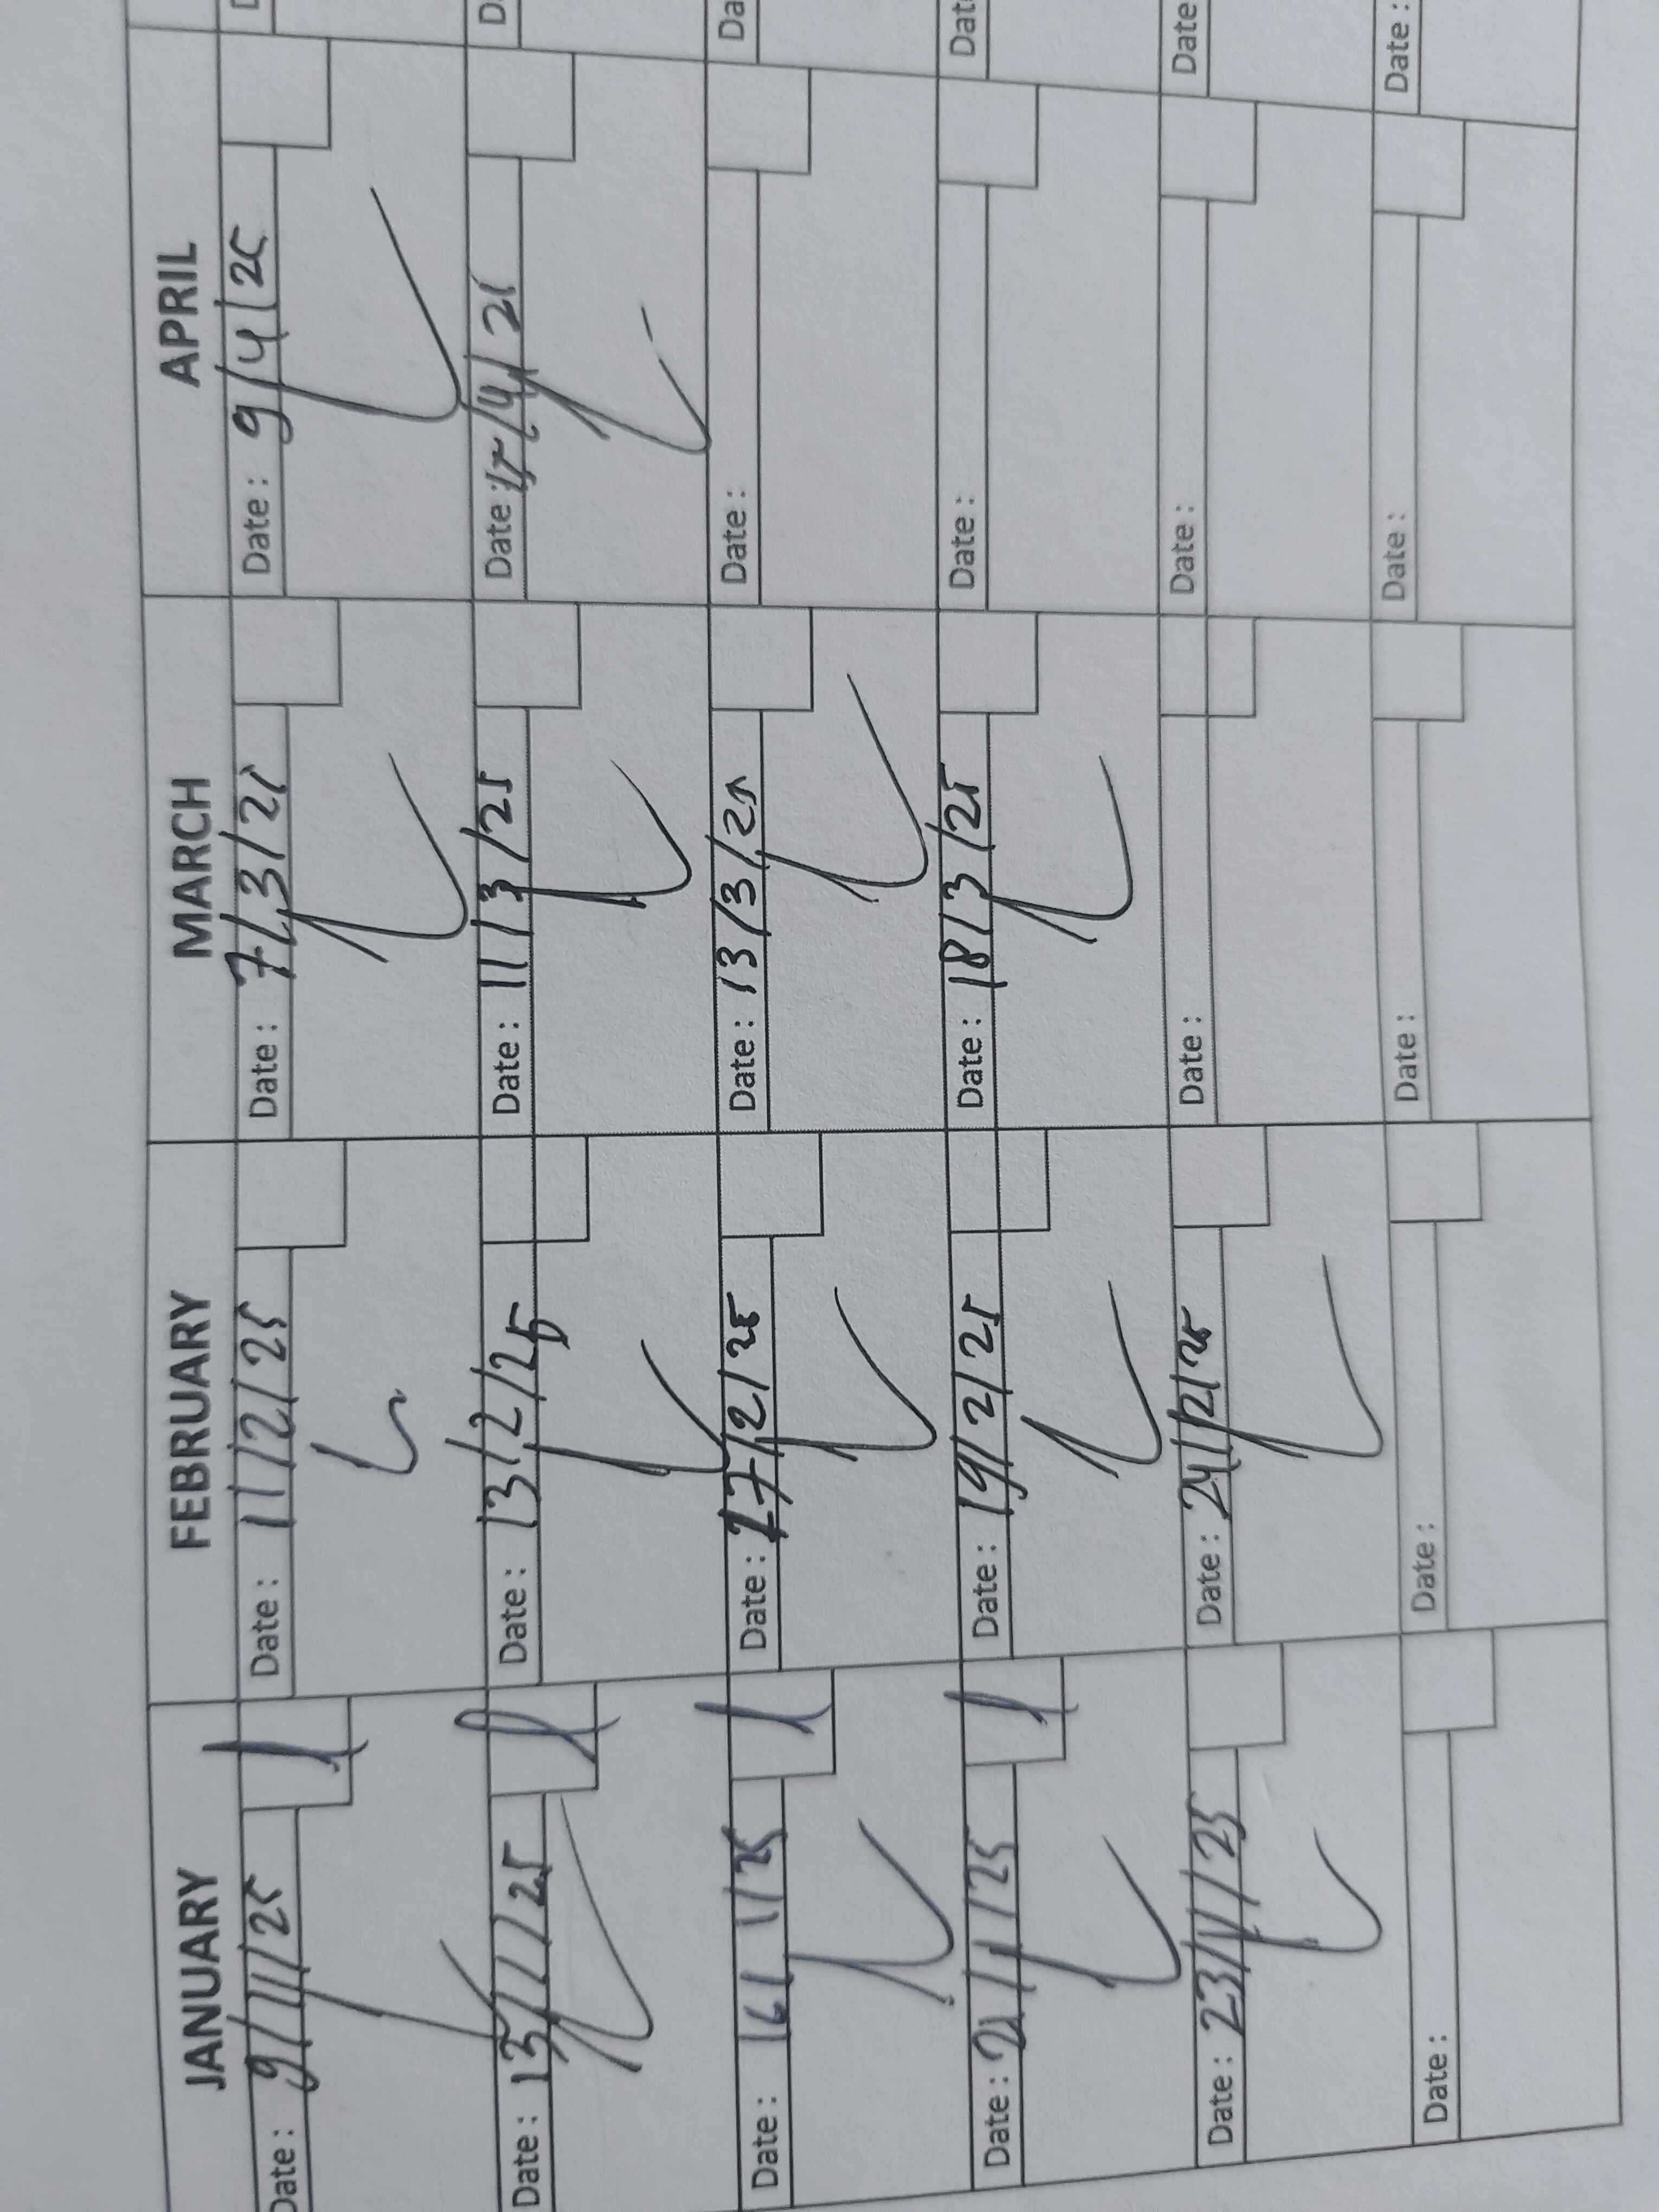 JANUARY FEBRUARY MARCH APRIL
Date: 9/1/25 Date: 11/2/25 Date: 7/3/25 Date: 9/4/25
Date: 13/1/25 Date: 13/2/25 Date: 11/3/25 Date: /4/25
Date: 16/1/25 Date: 17/2/25 Date: 13/3/25 Date: Da
Date: 21/1/25 Date: 19/2/25 Date: 18/3/25 Date: Dat
Date: 23/1/25 Date: 24/2/25 Date: Date: Date
Date: Date: Date: Date: Date: